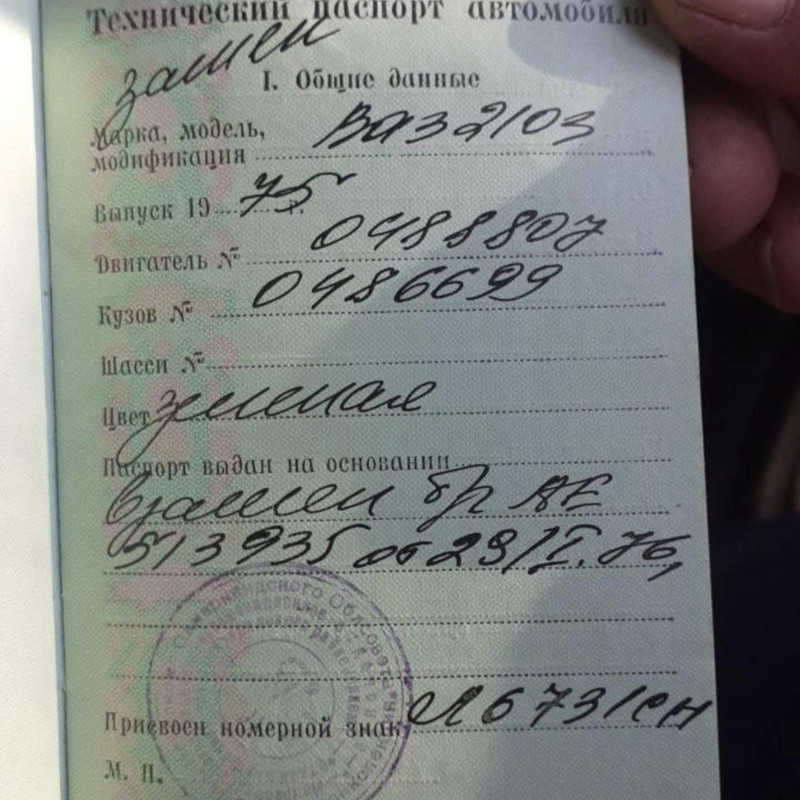 Технический паспорт автомобиля
замен
I. Общие данные
Марка, модель, ВАЗ 2103
модификация
Выпуск 19 75 г.
Двигатель № 0488807
Кузов № 0486699
Шасси №
Цвет зеленая
Паспорт выдан на основании
Взамен бр АЕ
513935 от 29/I. 76,
Присвоен номерной знак 6731 СН
М. П.